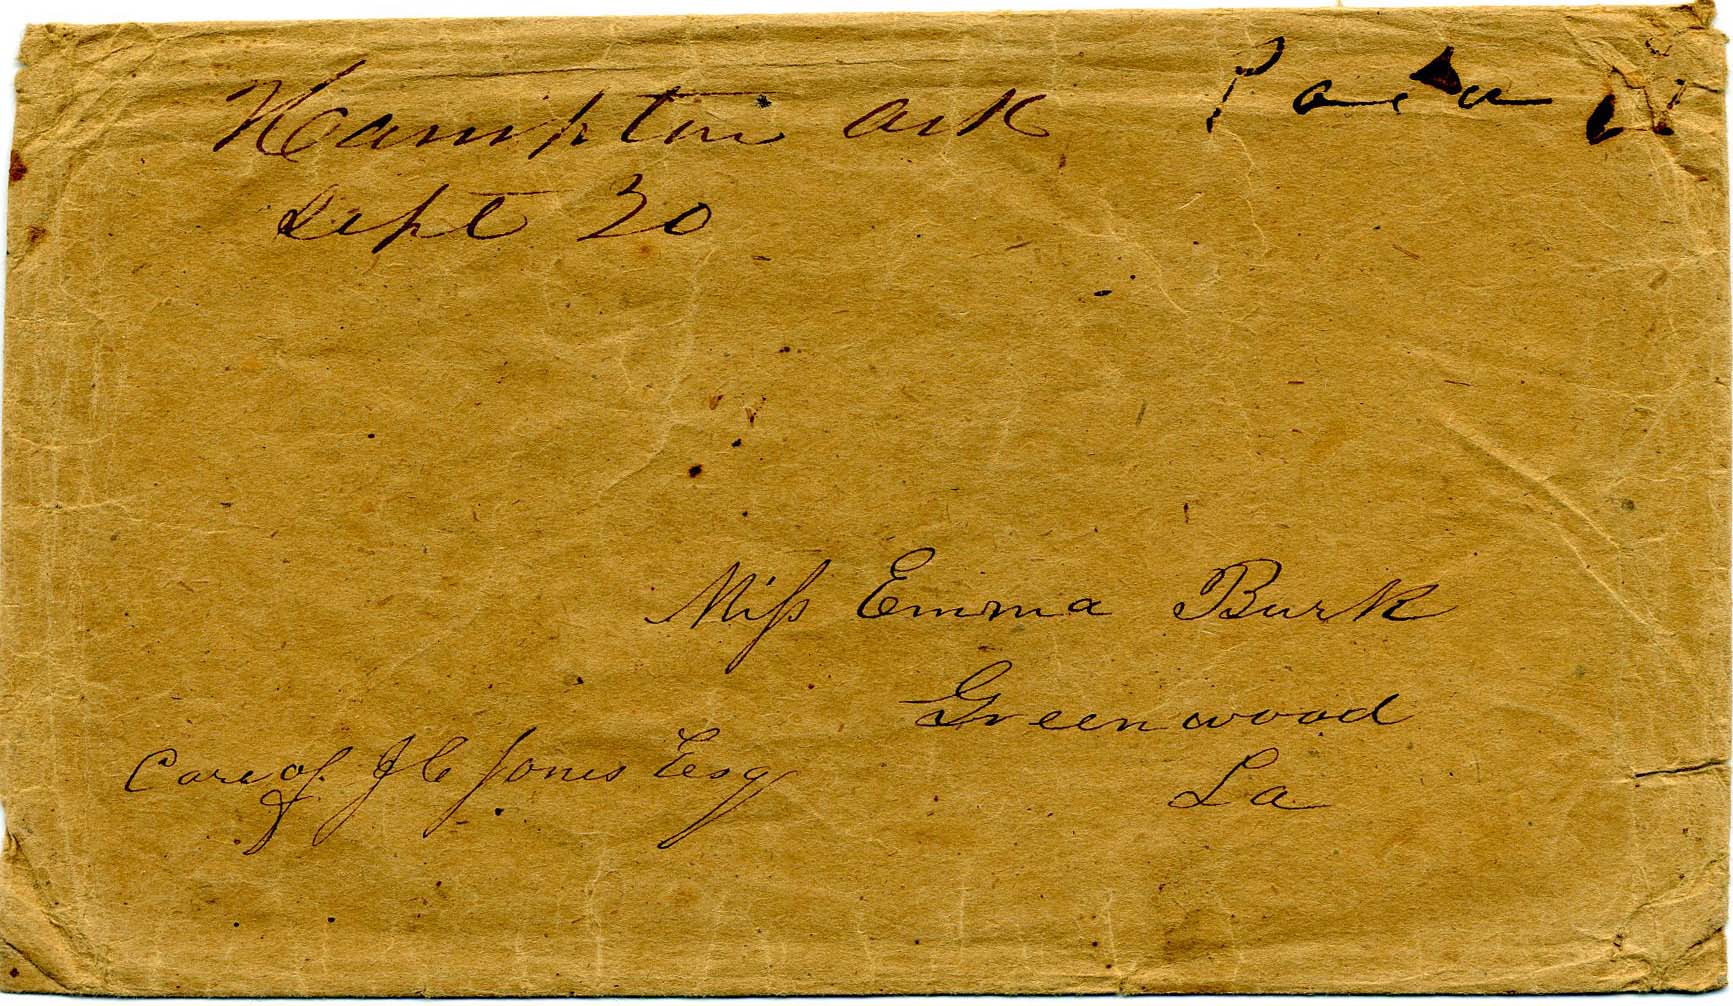 Hampton Ark Paid
Sept 30
Miss Emma Burk
Greenwood
La
Care of J C Jones Esq